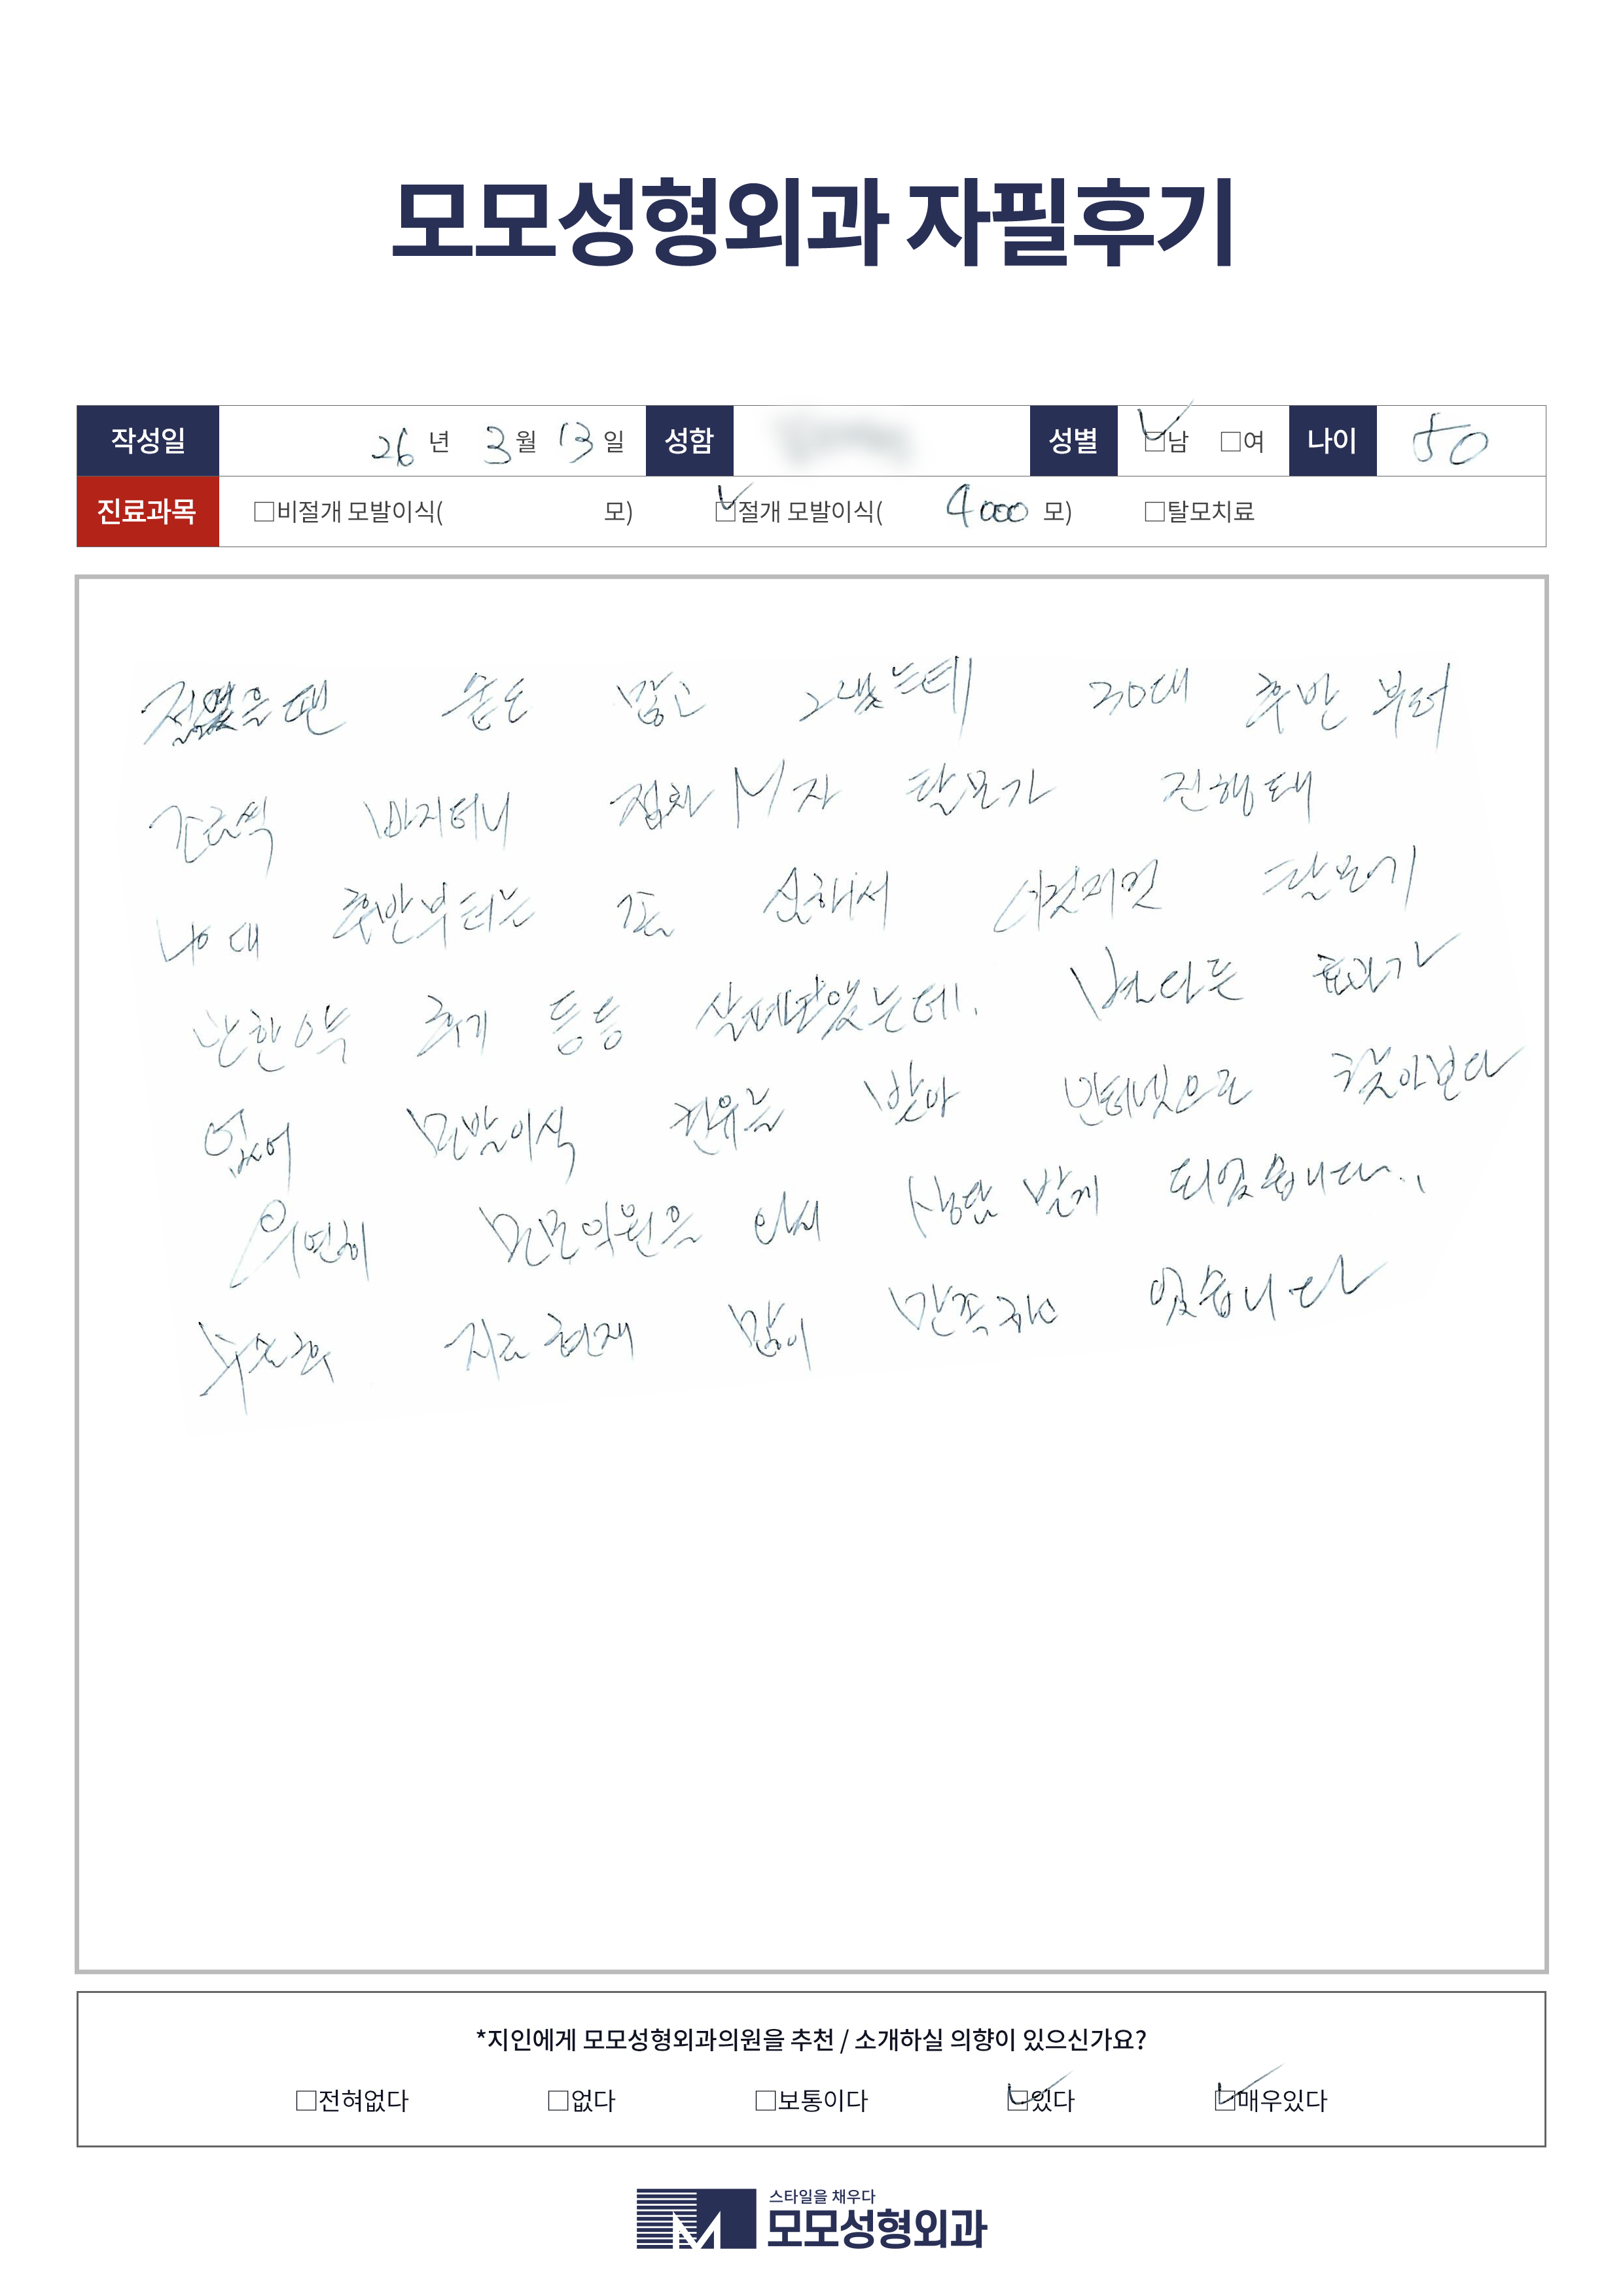 모모성형외과 자필후기
작성일 26 년 3 월 13 일 성함 성별 ☑남 □여 나이 50
진료과목 □비절개 모발이식( 모) ☑절개 모발이식( 4000 모) □탈모치료
젊었을땐 숱도 많고 그랬는데 30대 후반 부터
조금씩 빠지더니 점차 M자 탈모가 진행돼
40대 후반부터는 좀 심해서 이것저것 탈모기
난한약 후기 등등 살펴보았는데. 별다른 효과가
없어 모발이식 권유를 받아 인터넷으로 찾아보다
우연히 모모의원을 상담 받게 되었습니다..
수술후 지금 현재 많이 만족하고 있습니다
*지인에게 모모성형외과의원을 추천 / 소개하실 의향이 있으신가요?
□전혀없다 □없다 □보통이다 ☑있다 ☑매우있다
스타일을 채우다
모모성형외과